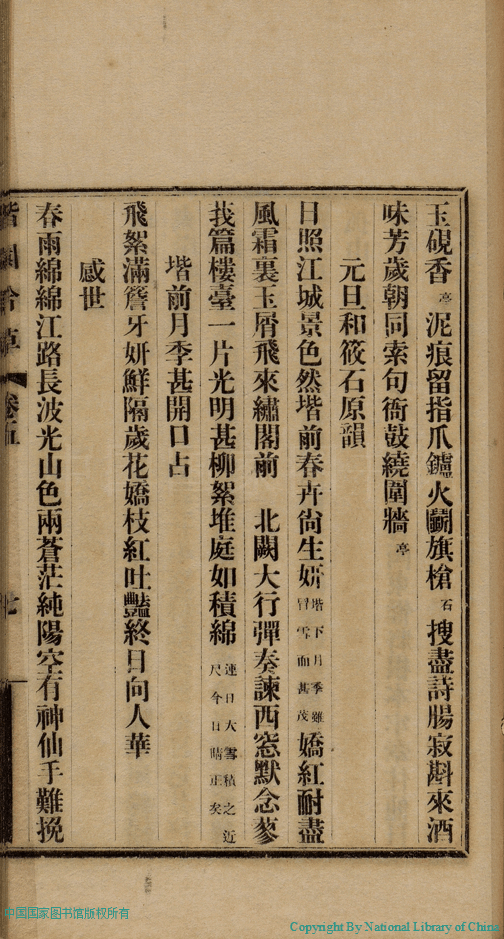 玉硯香亭泥痕留指爪鑪火鬭旗槍石搜盡詩腸寂斟來酒
味芳歲朝同索句衙鼓繞圍牆亭
元旦和筱石原韻
日照江城景色然堦前春卉尙生妍堦下月季雖冒雪而甚茂嬌紅耐盡
風霜裏玉屑飛來繡閣前　北闕大行彈奏諫西窓默念蓼
莪篇樓臺一片光明甚柳絮堆庭如積綿連日大雪積之近尺今日晴正矣
堦前月季甚開口占
飛絮滿簷牙妍鮮隔歲花嬌枝紅吐豔終日向人華
感世
春雨綿綿江路長波光山色兩蒼茫純陽空有神仙手難挽
卷五
七
中国国家图书馆版权所有
Copyright By National Library of China